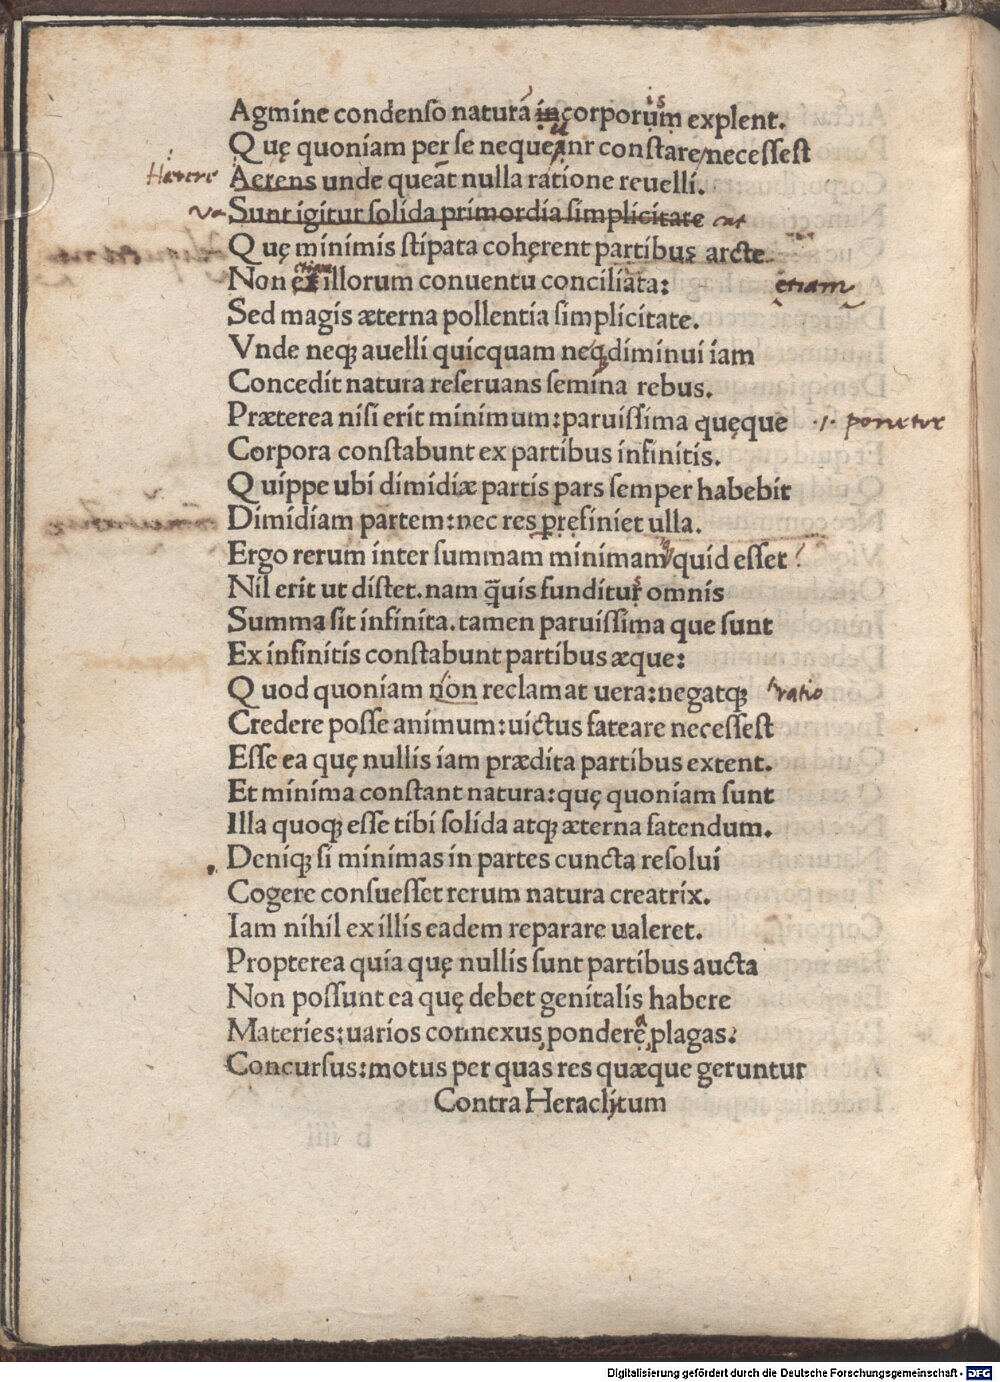 Agmine condenso naturā incorporum explent. is
Q uę quoniam per se nequeunt constare necessest
Haerere Aerens unde queāt nulla ratione reuelli.
Sunt igitur solida primordia simplicitate
Q uę minimis stipata cohęrent partibus arcte
Non ex illorum conuentu conciliata: etiam
Sed magis æterna pollentia simplicitate.
Vnde neqȝ auelli quicquam neqȝ diminui iam
Concedit natura reseruans semina rebus.
Præterea nisi erit minimum: paruissima quęque .i. ponetur
Corpora constabunt ex partibus infinitis.
Q uippe ubi dimidiæ partis pars semper habebit
Dimidiam partem: nec res prefiniet ulla.
Ergo rerum inter summam minimam quid esset?
Nil erit ut distet. nam q̄uis funditus omnis
Summa sit infinita. tamen paruissima que sunt
Ex infinitis constabunt partibus æque:
Q uod quoniam non reclamat uera: negatqȝ ratio
Credere posse animum: uictus fateare necessest
Esse ea quę nullis iam prædita partibus extent.
Et minima constant natura: quę quoniam sunt
Illa quoqȝ esse tibi solida atqȝ æterna fatendum.
Deniqȝ si minimas in partes cuncta resolui
Cogere consuesset rerum natura creatrix.
Iam nihil ex illis eadem reparare ualeret.
Propterea quia quę nullis sunt partibus aucta
Non possunt ea quę debet genitalis habere
Materies: uarios connexus, pondere, plagas.
Concursus: motus per quas res quæque geruntur
Contra Heraclitum
Digitalisierung gefördert durch die Deutsche Forschungsgemeinschaft - DFG